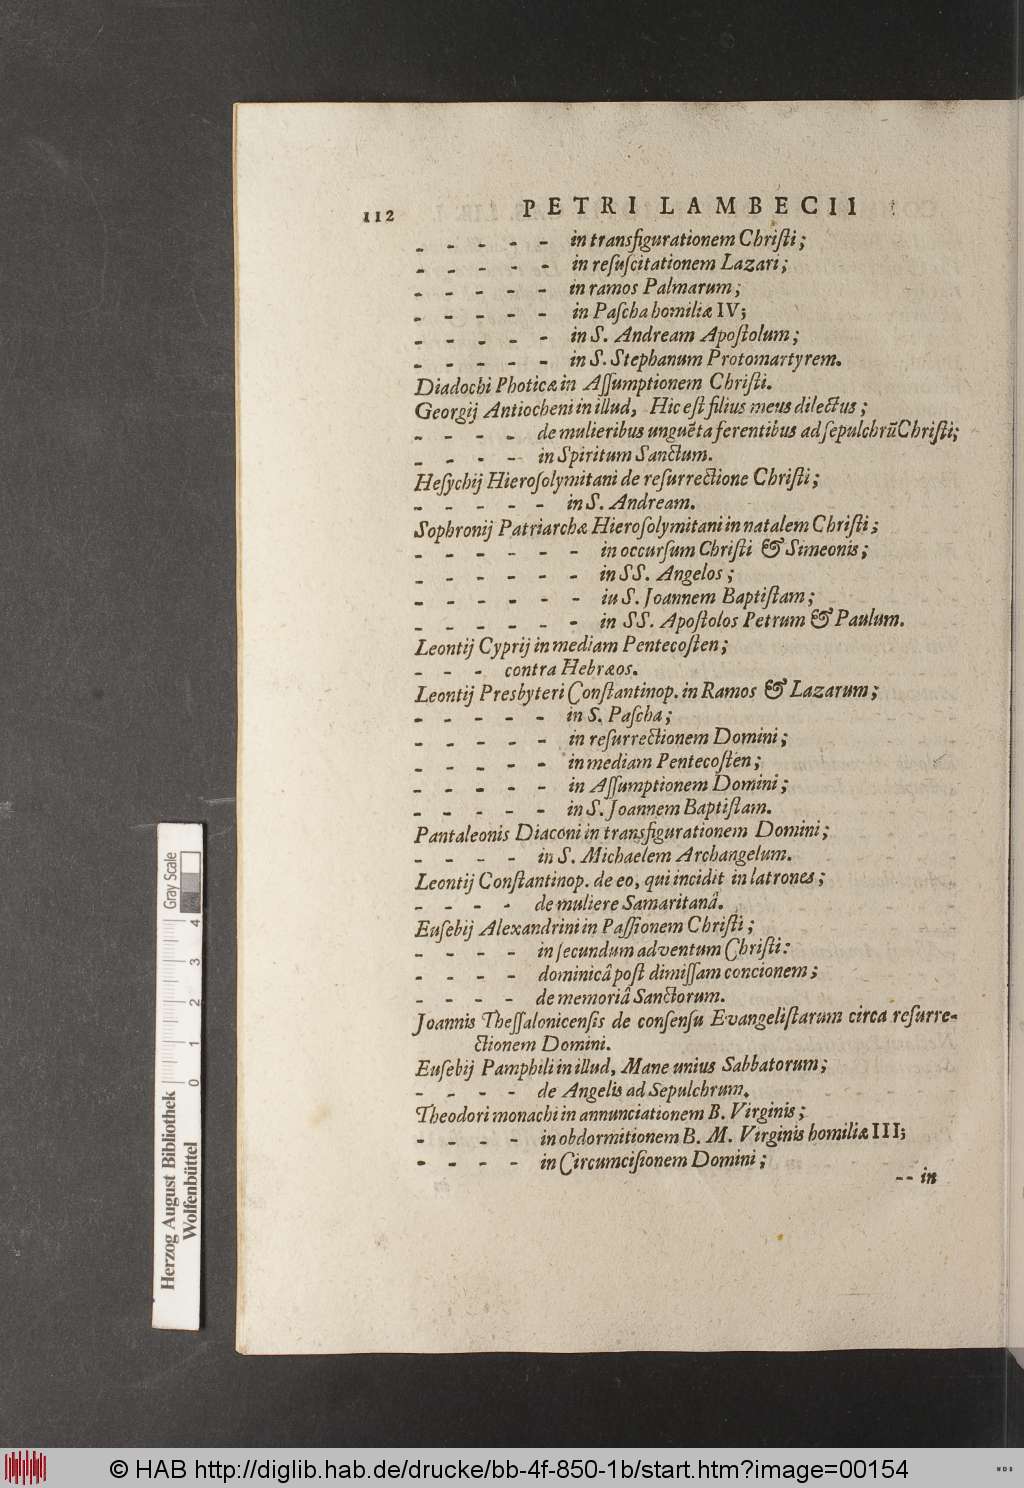 112 PETRI LAMBECII
- - - - - in transfigurationem Chriſti;
- - - - - in reſuſcitationem Lazari;
- - - - - in ramos Palmarum;
- - - - - in Paſcha homiliæ IV;
- - - - - in S. Andream Apoſtolum;
- - - - - in S. Stephanum Protomartyrem.
Diadochi Photicæ in Aſſumptionem Chriſti.
Georgij Antiocheni in illud, Hic eſt filius meus dilectus;
- - - - de mulieribus unguẽta ferentibus ad ſepulchrũ Chriſti;
- - - - in Spiritum Sanctum.
Heſychij Hieroſolymitani de reſurrectione Chriſti;
- - - - - in S. Andream.
Sophronij Patriarchæ Hieroſolymitani in natalem Chriſti;
- - - - - - in occurſum Chriſti & Simeonis;
- - - - - - in SS. Angelos;
- - - - - - iu S. Joannem Baptiſtam;
- - - - - - in SS. Apoſtolos Petrum & Paulum.
Leontij Cyprij in mediam Pentecoſten;
- - - contra Hebræos.
Leontij Presbyteri Conſtantinop. in Ramos & Lazarum;
- - - - - in S. Paſcha;
- - - - - in reſurrectionem Domini;
- - - - - in mediam Pentecoſten;
- - - - - in Aſſumptionem Domini;
- - - - - in S. Joannem Baptiſtam.
Pantaleonis Diaconi in transfigurationem Domini;
- - - - in S. Michaelem Archangelum.
Leontij Conſtantinop. de eo, qui incidit in latrones;
- - - - de muliere Samaritanâ.
Euſebij Alexandrini in Paſſionem Chriſti;
- - - - in ſecundum adventum Chriſti:
- - - - dominicâ poſt dimiſſam concionem;
- - - - de memoriâ Sanctorum.
Joannis Theſſalonicenſis de conſenſu Evangeliſtarum circa reſurre-
ctionem Domini.
Euſebij Pamphili in illud, Mane unius Sabbatorum;
- - - - de Angelis ad Sepulchrum.
Theodori monachi in annunciationem B. Virginis;
- - - - in obdormitionem B. M. Virginis homiliæ III;
- - - - in Circumciſionem Domini;
-- in
Herzog August Bibliothek
Wolfenbüttel
0 1 2 3 4
Gray Scale
© HAB http://diglib.hab.de/drucke/bb-4f-850-1b/start.htm?image=00154